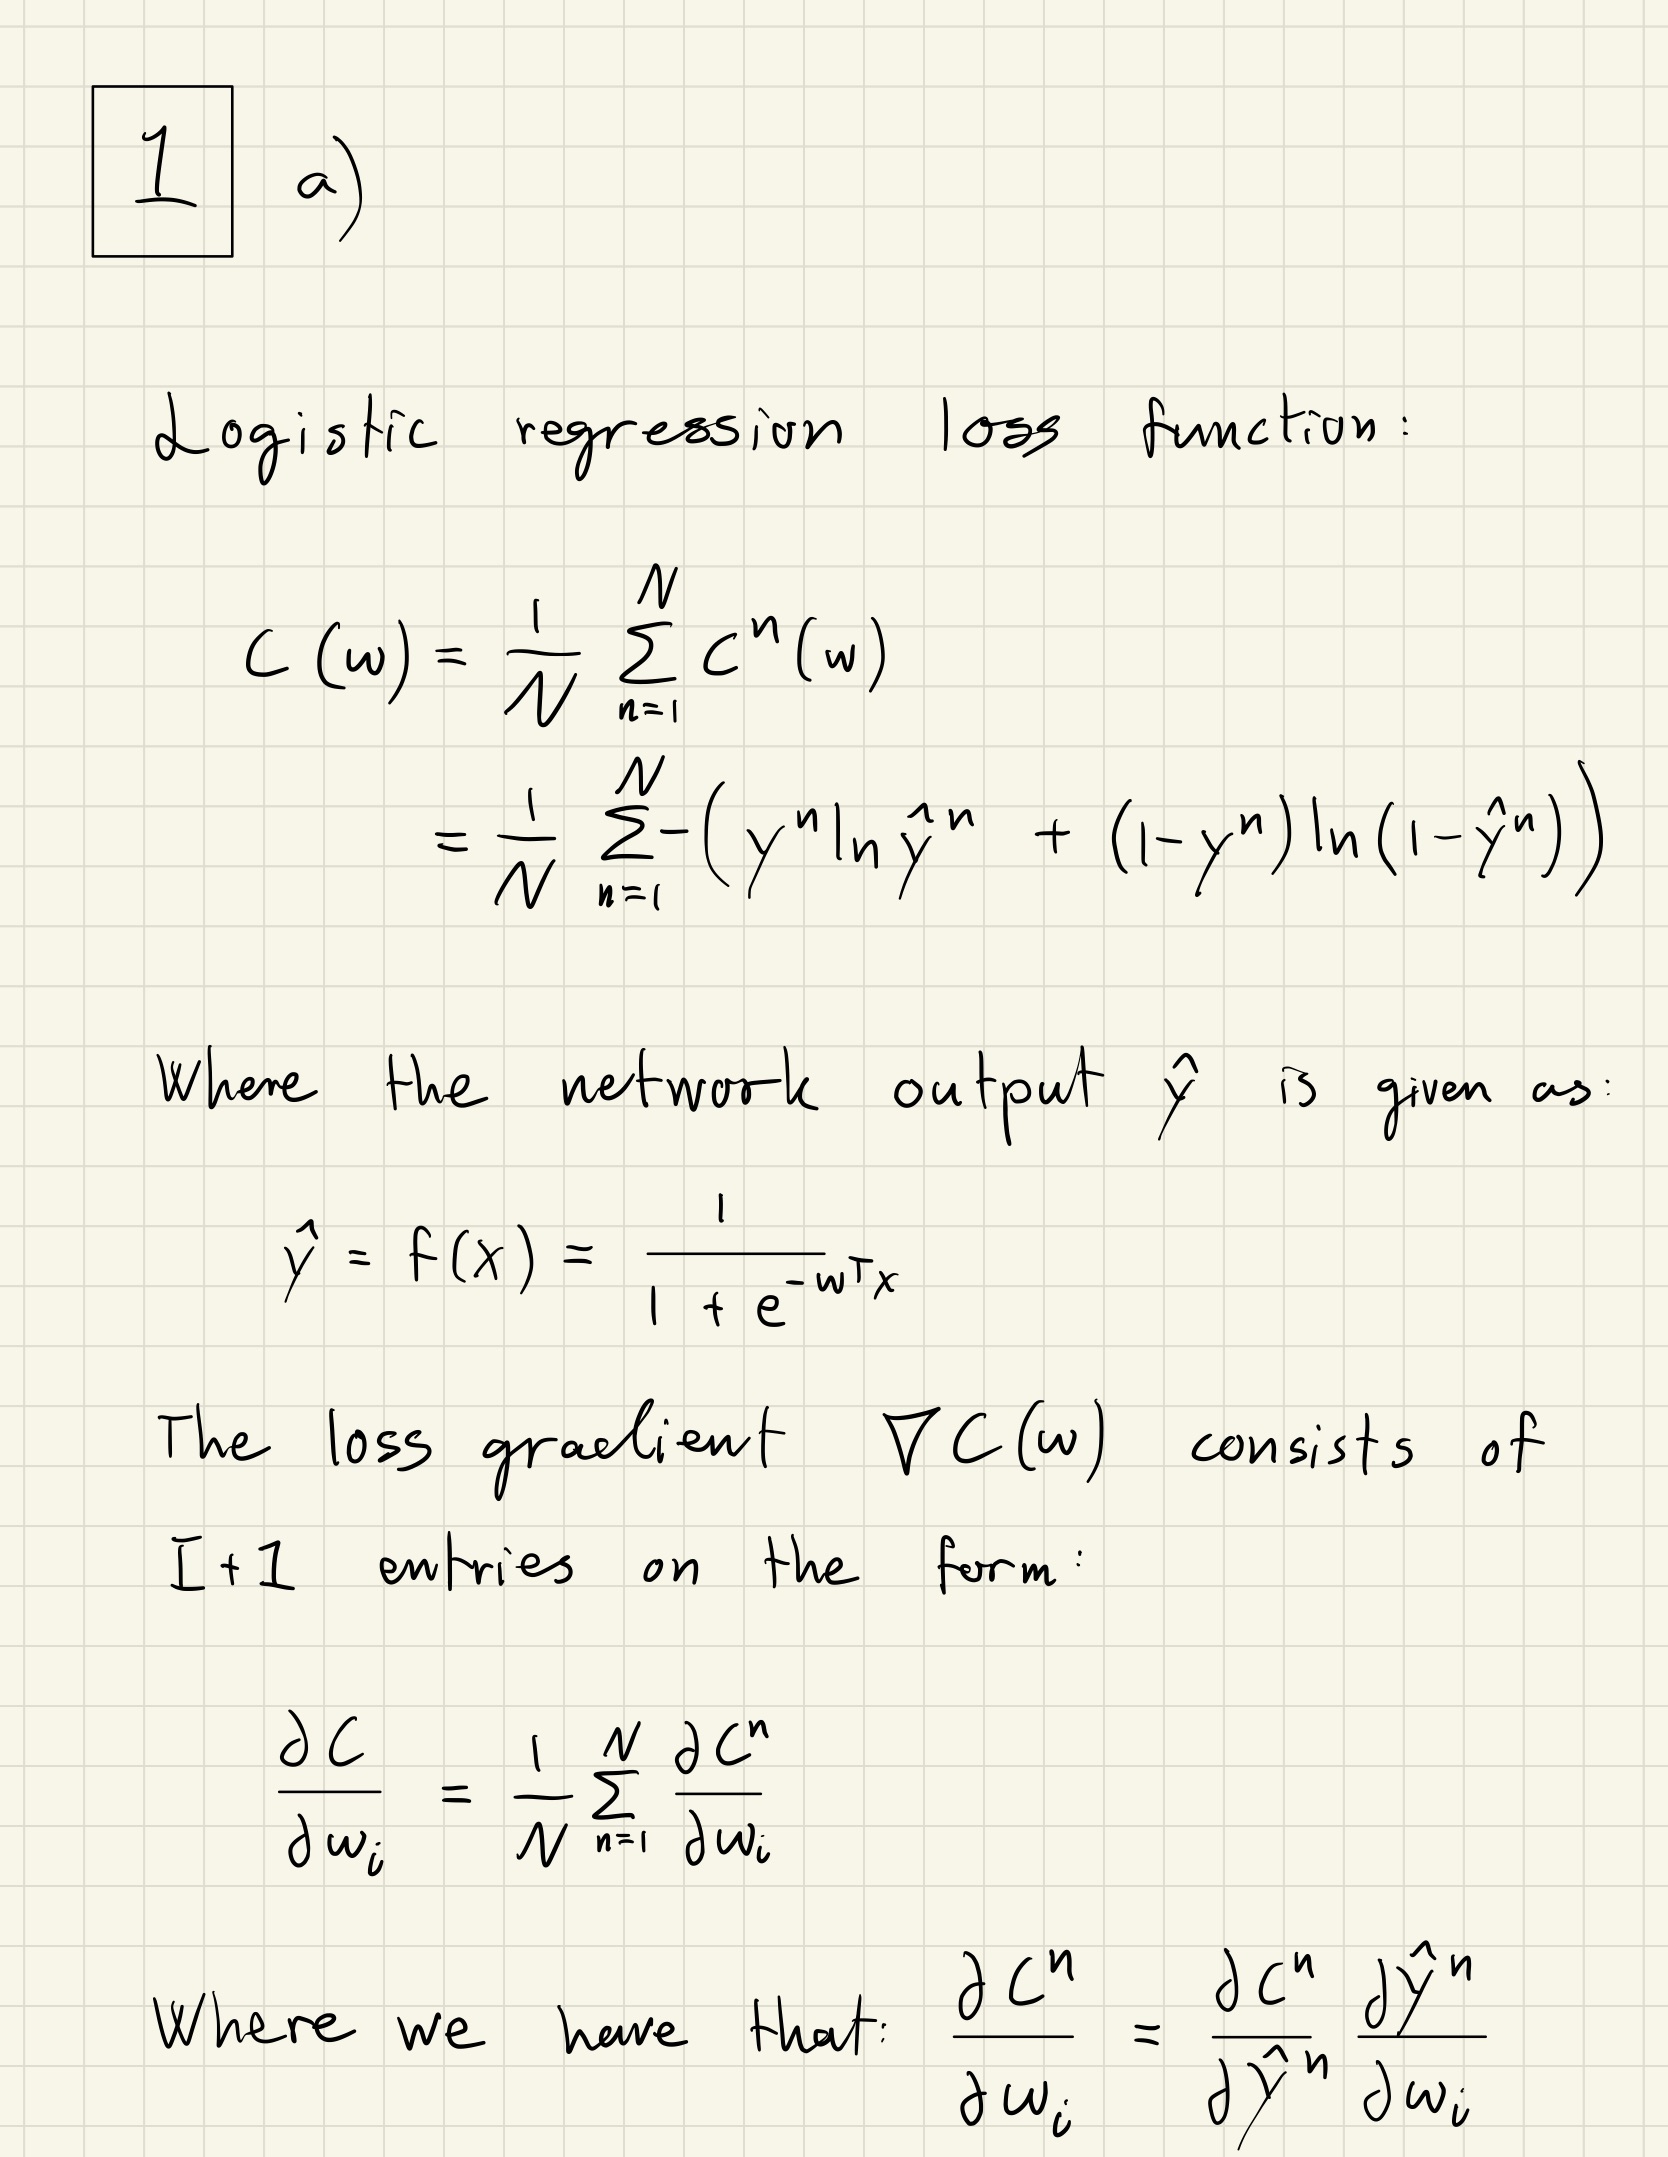 1 a)
Logistic regression loss function:
C(w) = \frac{1}{N} \sum_{n=1}^{N} C^n(w)
= \frac{1}{N} \sum_{n=1}^{N} -(y^n ln ŷ^n + (1-y^n) ln(1-ŷ^n))
Where the network output ŷ is given as:
ŷ = f(x) = \frac{1}{1 + e^{-w^T x}}
The loss gradient ∇C(w) consists of
I+1 entries on the form:
\frac{∂C}{∂w_i} = \frac{1}{N} \sum_{n=1}^{N} \frac{∂C^n}{∂w_i}
Where we have that: \frac{∂C^n}{∂w_i} = \frac{∂C^n}{∂ŷ^n} \frac{∂ŷ^n}{∂w_i}